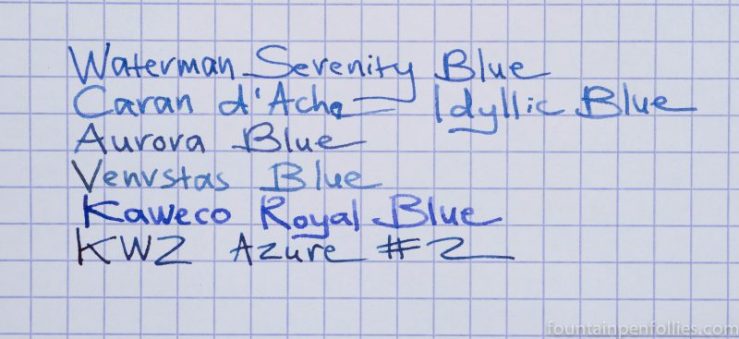 Waterman Serenity Blue
Caran d'Ache Idyllic Blue
Aurora Blue
Venvstas Blue
Kaweco Royal Blue
KWZ Azure #2
fountainpenfollies.com